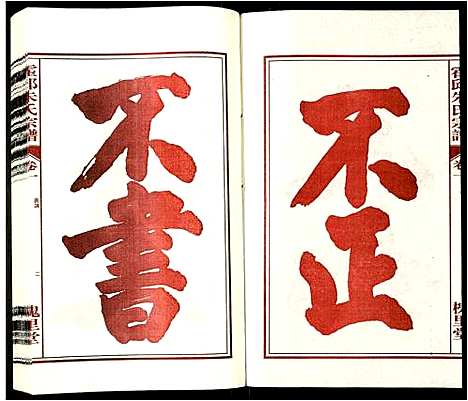 不正
不書
霍邱朱氏宗譜
卷一
槐里堂
霍邱朱氏宗譜
卷一
二
槐里堂